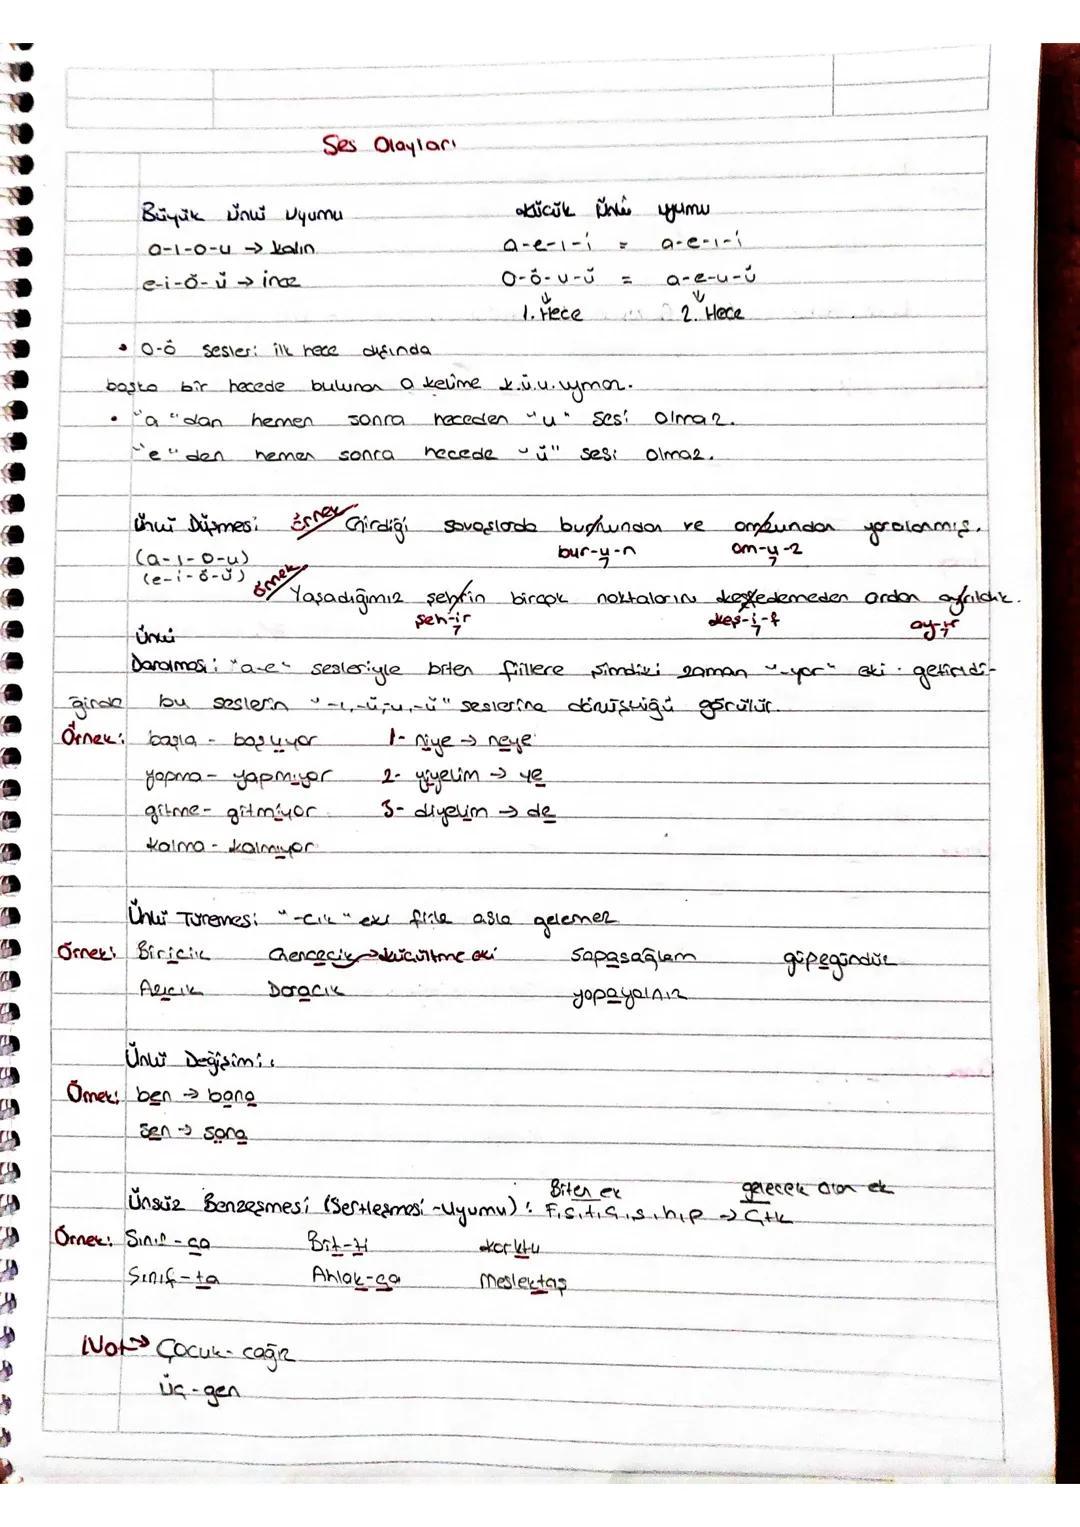 Ses Olayları
Büyük Ünlü Uyumu
a-ı-o-u → kalın
e-i-ö-ü → ince
Küçük Ünlü uyumu
a-e-ı-i = a-e-ı-i
o-ö-u-ü = a-e-u-ü
1. Hece 2. Hece
• o-ö sesleri ilk hece dışında
başka bir hecede bulunan o kelime k.ü.u. uymaz.
• "a" dan hemen sonra heceden "u" sesi olmaz.
"e" den hemen sonra hecede "ü" sesi olmaz.
Ünlü Düşmesi: Örnek Girdiği savaşlarda burnundan ve omzundan yaralanmış.
(a-ı-o-u) bur-u-n om-u-z
(e-i-ö-ü)
Örnek Yaşadığımız şehrin birçok noktalarını keşfedemeden ordan ayrıldık.
şeh-i-r keş-i-f ay-ır
Ünlü
Daralması: "a-e" sesleriyle biten fiillere şimdiki zaman "-yor" eki getirdi-
ğinde bu seslerin "-ı,-ü,-u,-ü" seslerine dönüştüğü görülür.
Örnek: başla - başlıyor 1- niye → neye
yapma - yapmıyor 2- yiyelim → ye
gitme - gitmiyor 3- diyelim → de
kalma - kalmıyor
Ünlü Türemesi: "-cık" eki fiile asla gelemez
Örnek: Biricik Gencecik→küçültme eki sapasağlam güpegündüz
Azıcık Daracık yapayalnız
Ünlü Değişimi:
Örnek: ben → bana
sen → sana
Biten ek gelecek olan ek
Ünsüz Benzeşmesi (Sertleşmesi-Uyumu): F,s,t,ç,ş,h,p → ç,t,k
Örnek: Sınıf-ça Bit-ti korktu
Sınıf-ta Ahlak-ça Meslektaş
Not→ Çocuk-cağız
üç-gen